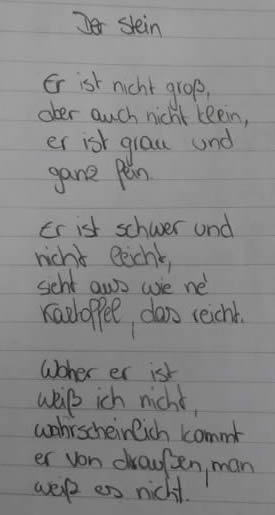 Der Stein
Er ist nicht groß,
aber auch nicht klein,
er ist grau und
ganz fein.
Er ist schwer und
nicht leicht,
sieht aus wie ne'
Kartoffel, das reicht.
Woher er ist
weiß ich nicht,
wahrscheinlich kommt
er von draußen, man
weiß es nicht.